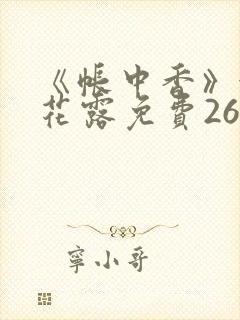 《帳中香》
花露免費26
寧小哥